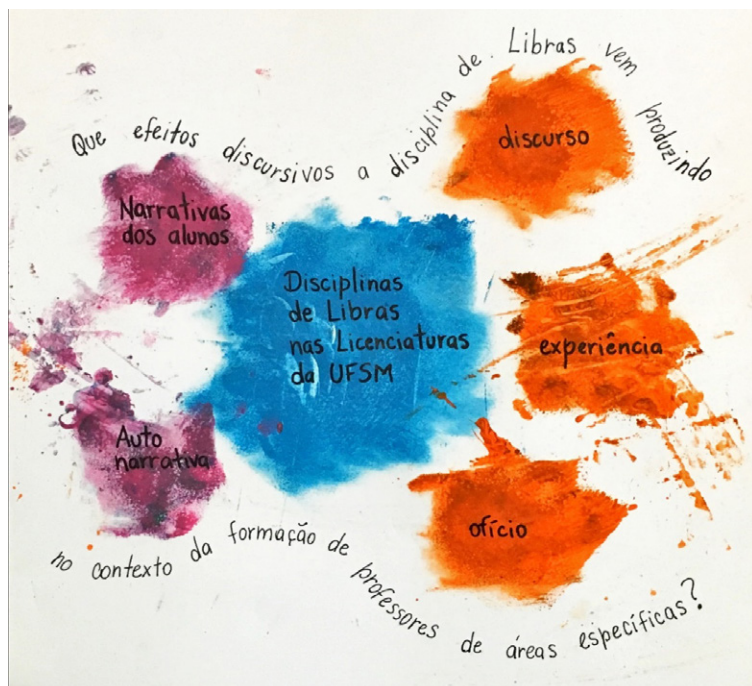 Que efeitos discursivos a disciplina de Libras vem produzindo
discurso
Narrativas
dos alunos
Disciplinas
de Libras
nas Licenciaturas
da UFSM
experiência
Auto
narrativa
ofício
no contexto da formação de professores de áreas específicas?